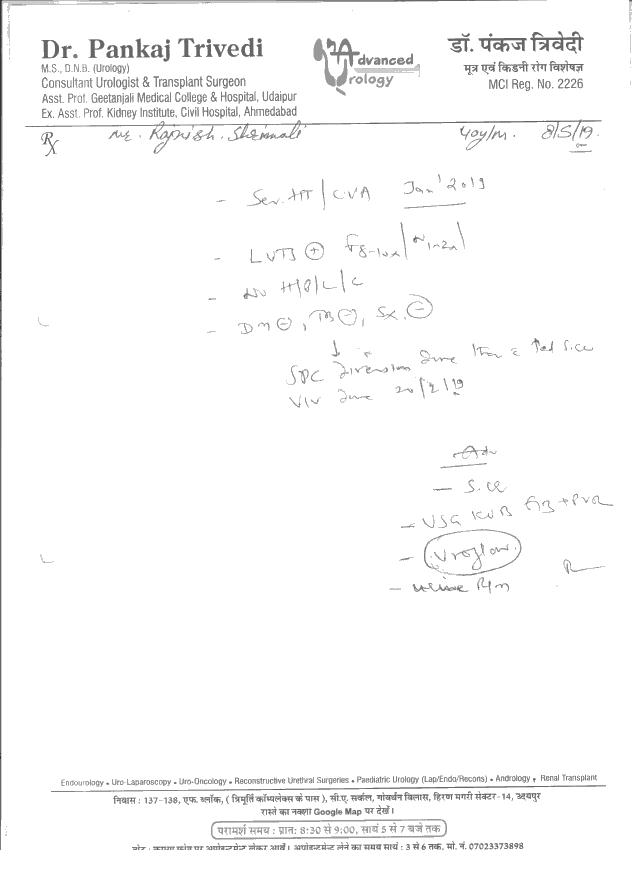 Dr. Pankaj Trivedi
M.S., D.N.B. (Urology)
Consultant Urologist & Transplant Surgeon
Asst. Prof. Geetanjali Medical College & Hospital, Udaipur
Ex. Asst. Prof. Kidney Institute, Civil Hospital, Ahmedabad
Advanced
Urology
डॉ. पंकज त्रिवेदी
मूत्र एवं किडनी रोग विशेषज्ञ
MCI Reg. No. 2226
Rx Mr. 40y/m. 8/5/19.
- Sev. HT / CVA Jan' 2019
- LUTS ⊕
- No H/O/L/C
- DM ⊖, TB ⊖, Sx. ⊖
↓
SPC
VIU 20/2/19
Adv
- S. CR
- USG KUB + PVR
- Uroflow.
- Urine R/M
Endourology • Uro-Laparoscopy • Uro-Oncology • Reconstructive Urethral Surgeries • Paediatric Urology (Lap/Endo/Recons) • Andrology • Renal Transplant
निवास : 137-138, एफ. ब्लॉक, ( त्रिमूर्ति कॉम्पलेक्स के पास ), सी.ए. सर्कल, गोवर्धन विलास, हिरण मगरी सेक्टर-14, उदयपुर
रास्ते का नक्शा Google Map पर देखें।
परामर्श समय : प्रातः 8:30 से 9:00, सायं 5 से 7 बजे तक
नोट : कृपया फोन पर अपोइन्टमेन्ट लेकर आवें। अपोइन्टमेन्ट लेने का समय सायं : 3 से 6 तक, मो. नं. 07023373898